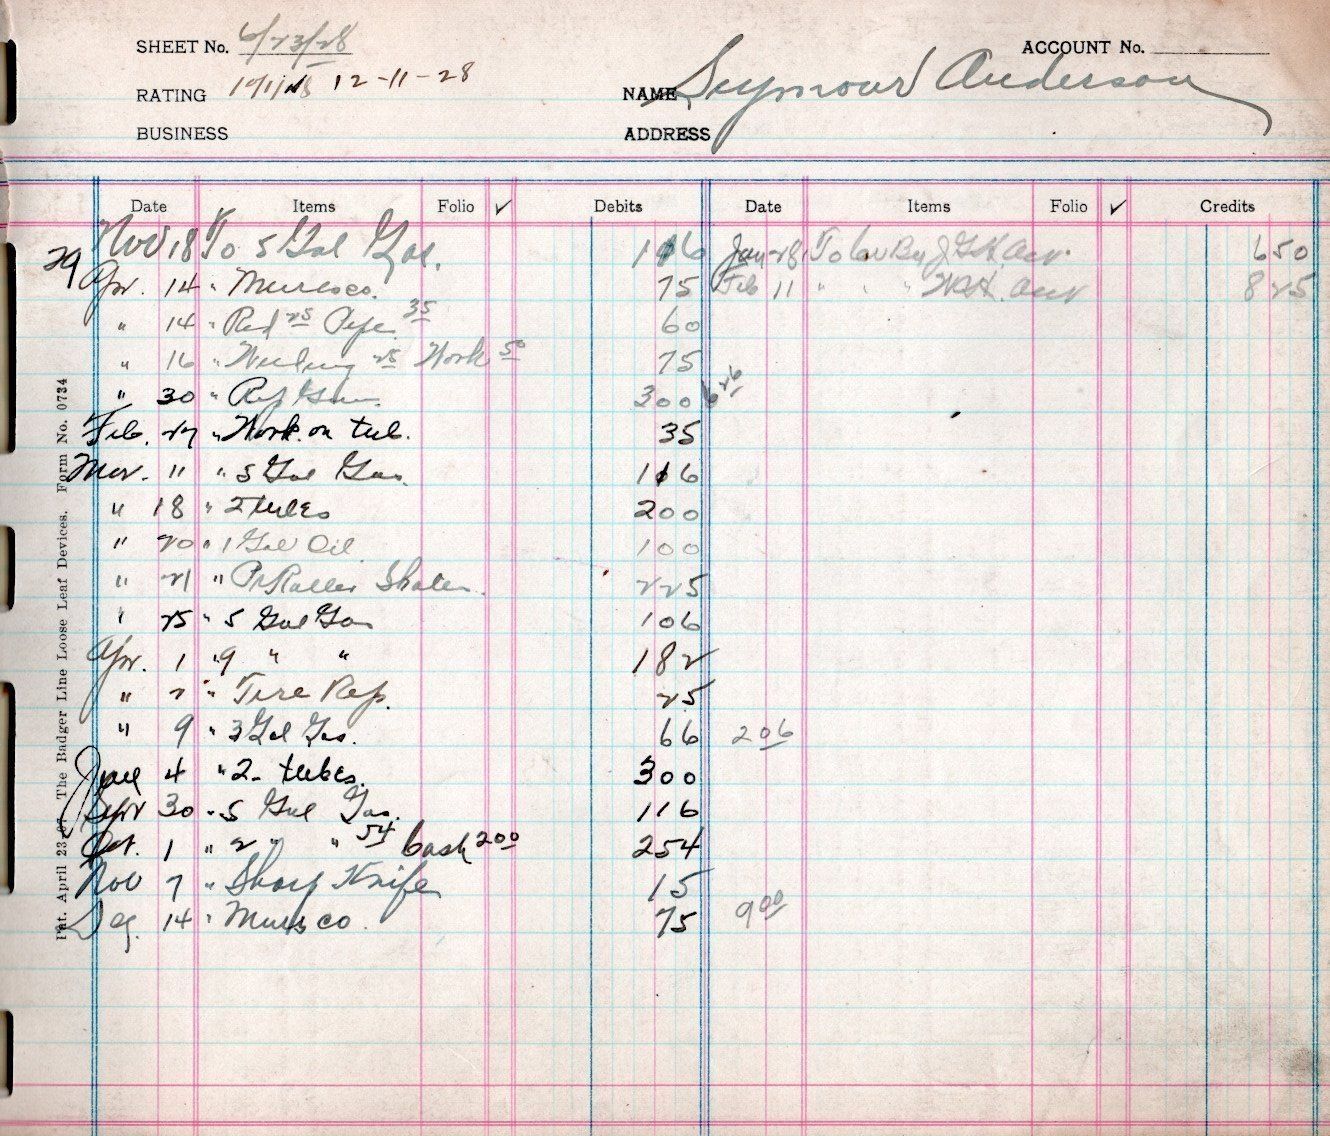 SHEET No. 6/23/28
ACCOUNT No.
RATING 12-11-28
NAME Seymour Anderson
BUSINESS
ADDRESS
Date Items Folio ✓ Debits Date Items Folio ✓ Credits
Nov 18 To 5 Gal Gas. 116 Jan 28 To By Acc. 650
29 Apr. 14 " Muresco. 75 Feb 11 " " " Acc 825
" 14 " Red 25 Pipe 35 60
" 16 " Welding 25 Work 50 75
" 30 " Rep 300 626
Feb. 27 " Work on tub. 35
Mar. 11 " 5 Gal Gas. 116
" 18 " 2 tubes 200
" 20 " 1 Gal Oil 100
" 21 " Pr Roller Skates. 225
" 25 " 5 Gal Gas 106
Apr. 1 " 9 " " 182
" 2 " Tire Rep. 25
" 9 " 3 Gal Gas. 66 206
June 4 " 2 - tubes. 300
Sept 30 " 5 Gal Gas. 116
Oct. 1 " 2 " " 54 Cash 200 254
Nov 7 " Sharp Knife 15
Dec. 14 " Muresco. 75 900
Pat. April 23, 07 The Badger Line Loose Leaf Devices. Form No. 0734